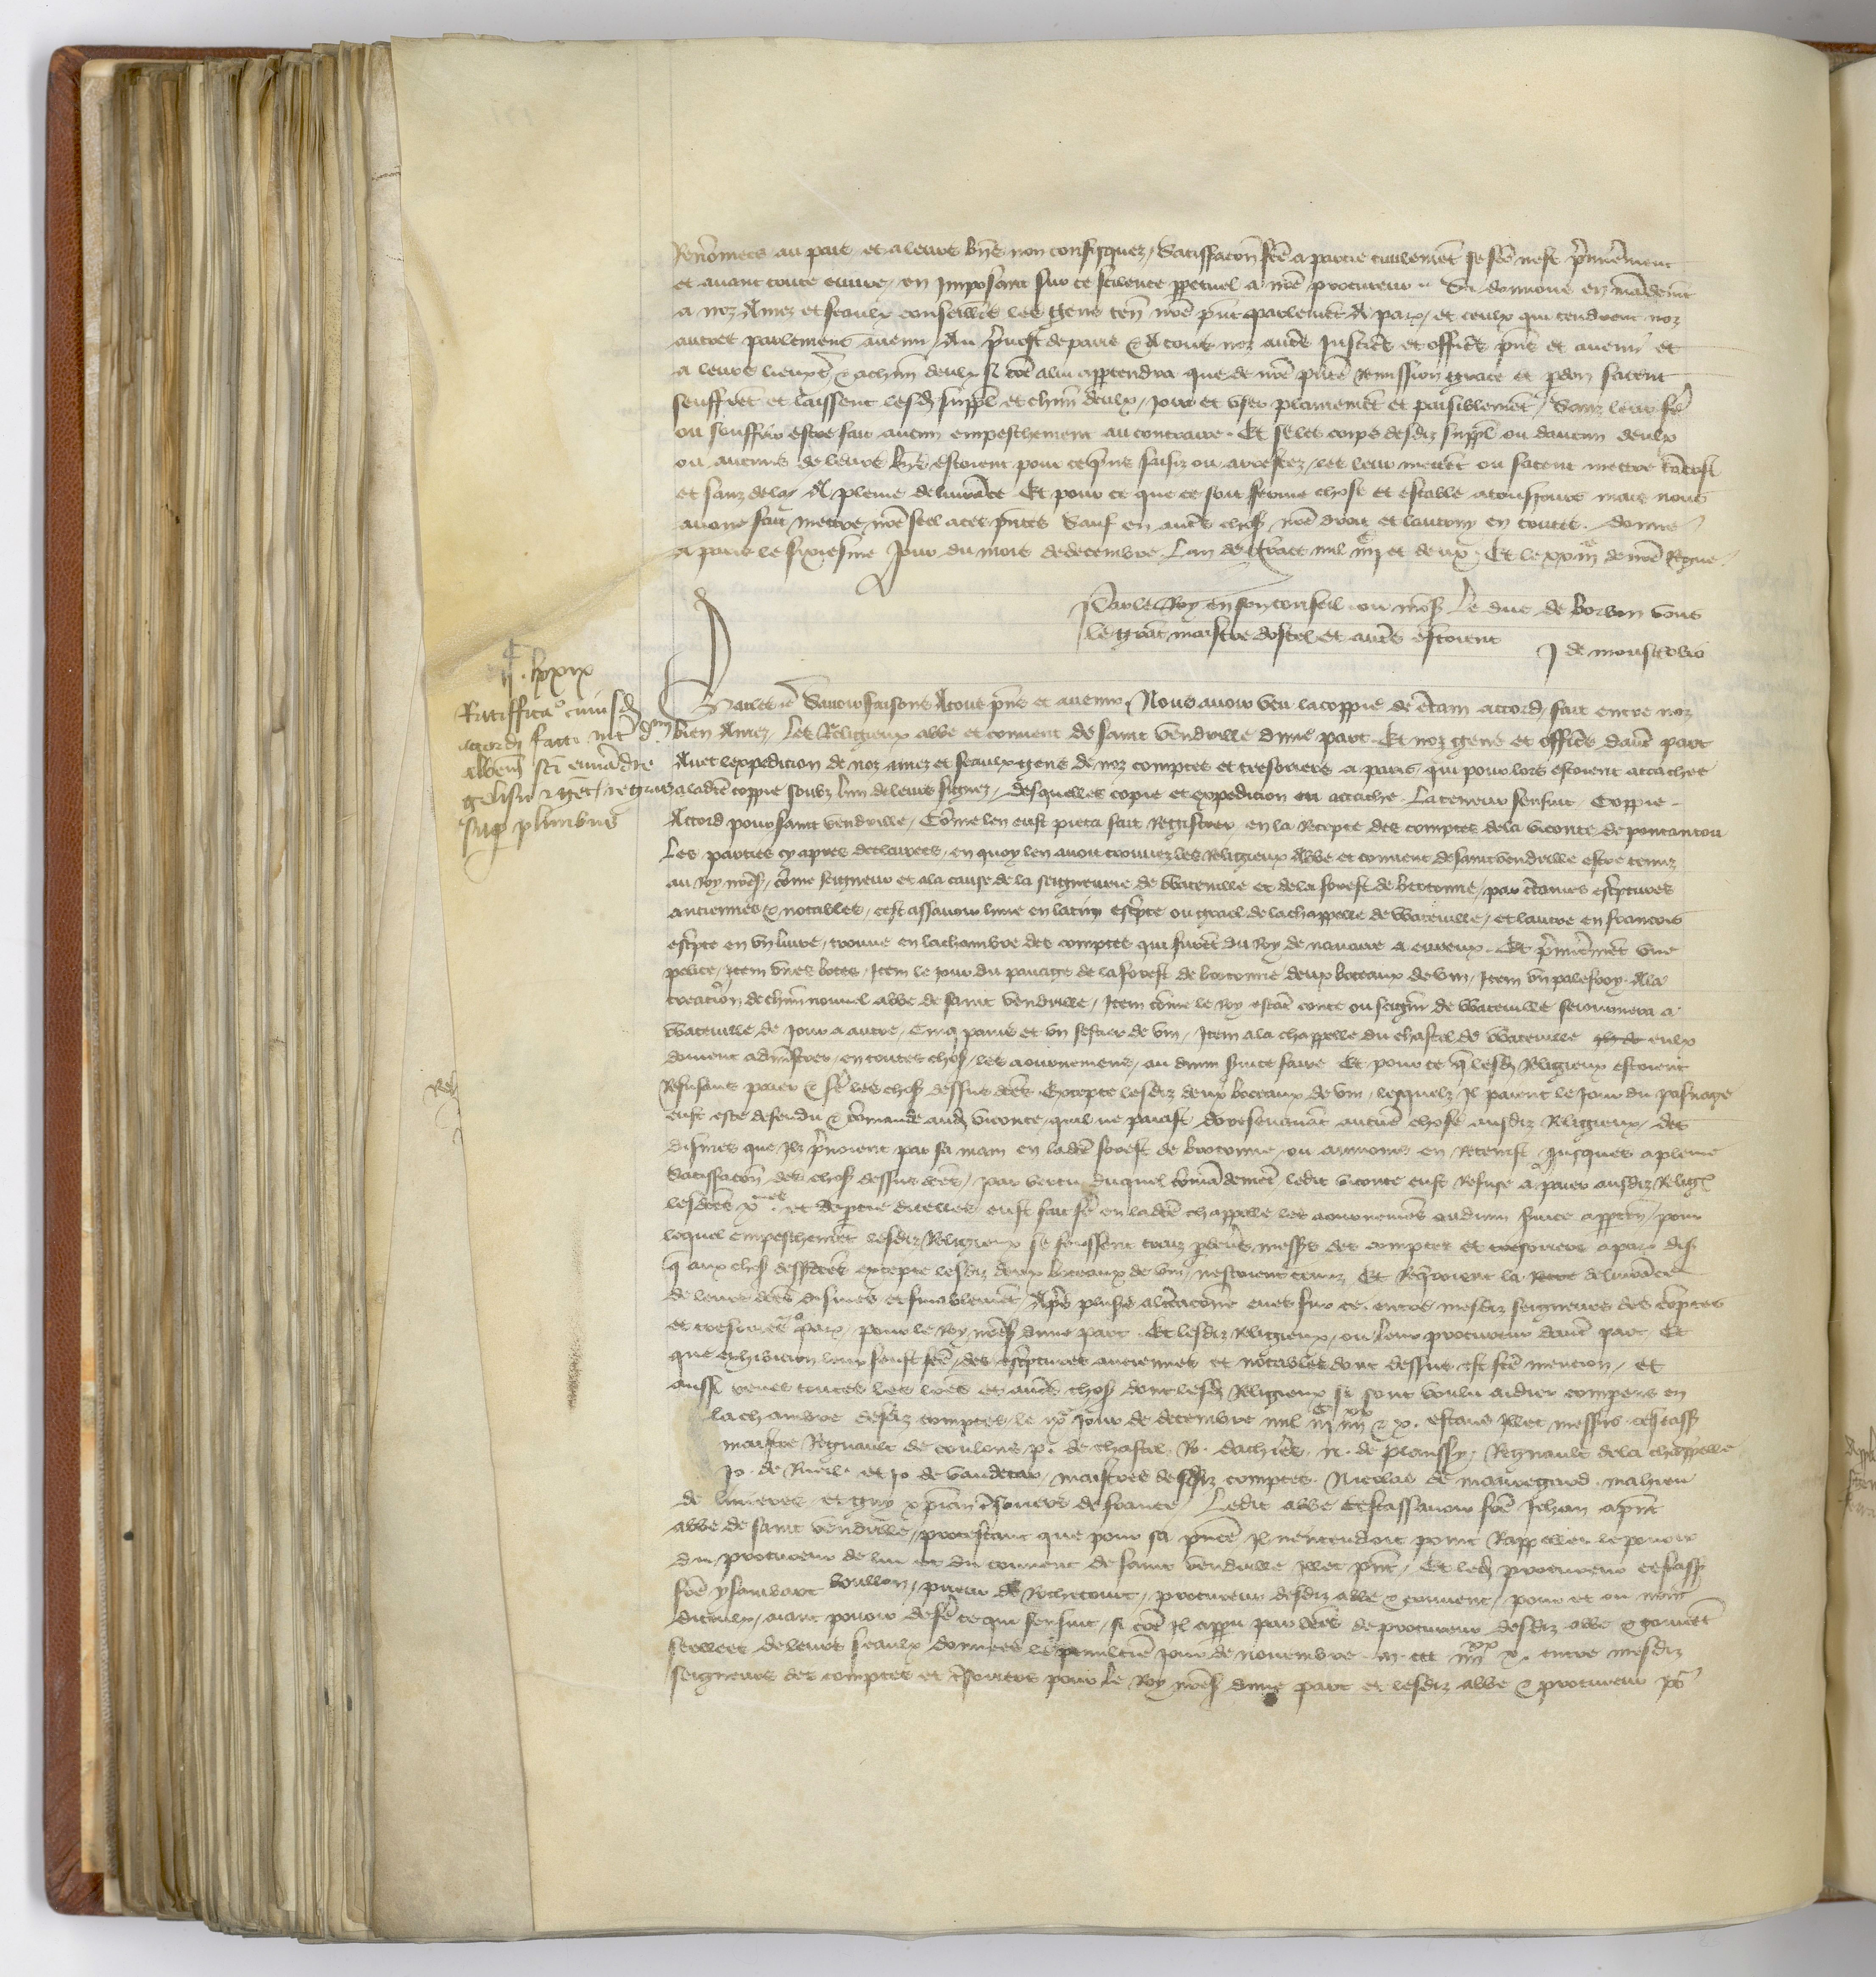 Renommees au pais et a leurs biens non confisquez, satisfacon fcē a partie civilemēt se fcē nest p̄mierement
et avant toute euvre, en imposant sur ce silence perpetuel a nr̄e procureur. Si donnons en mādemēt
a noz amez et feaulx conseillers les gens ten̄ nr̄e pn̄t parlemēt a paris, et ceulx qui tendront noz
autres parlemens avenir, Au p̄vost de paris & a tous noz autr̄s justiciers et officiers pn̄s et avenir et
a leurs lieuxten̄ & a chūn deulx si cōe a lui appartendra que de nr̄e pn̄te remission grace et pdon facent
seuffrēt et laissent lesd̄ suppl̄ et chūn deulx, joir et user plainemēt et paisiblemēt, Sanz leur fē
ou souffrir estre fait aucun empeschement au contraire. Et se les corps desdiz suppl̄ ou daucun deulx
ou aucuns de leurs biens estoient pour ce prins saisiz ou arrestez, les leur mettēt ou facent mettre tātost
et sanz delay A pleine delivrāce Et pour ce que ce soit ferme chose et estable a tousjours mais nous
avons fait mettre nr̄e seel a ces pn̄tes Sauf en autr̄s choses nr̄e droit et lautruy en toutes. Donne
a paris le sixiesme jour du mois de decembre Lan de grace mil iiijc et deux. Et le xxiije de nr̄e Regne
Par le Roy en son conseil ou mons̄ le duc de borbon vous
le grāt maistre dostel et autr̄s estoient
J de monsterolio
ijc. lxxix
Ratifficaco cuiusd̄
accord̄ facti int̄ dm̄
abbem̄ sc̄i
sup pluribus
Charles &c̄ Savoir faisons A tous pn̄s et avenir Nous avoir veu la coppie de c̄tain accord, fait entre noz
bien amez, les Religieux abbe et convent de saint Vendrille dune part. Et noz gens et officiers dautr̄ part
Avec lexpedicion de noz amez et feaulx gens de noz comptes et tresoriers a paris, qui pour lors estoient attachee
a ladc̄te coppie soubz lun de leurs signez, Desquelles copie et expedicion en attache La teneur sensuit. Coppie.
Accord pour saint Vendrille, Cōme len eust pieca fait Registrer en la Recepte des comptes de la viconte de pontautou
Les parties cy apres declairees, en quoy len avoit trouvez les Religieux Abbe et convent de saint vendrille estre tenuz
au Roy nr̄es̄, cōme seigneur et a la cause de la seigneurie de Wateville et de la forest de brotonne, par c̄taines escp̄tures
anciennes & notables, cest assavoir lune en latin escp̄te ou grael de la chappelle de Wateville, et lautre en francois
escp̄te en un livre, trouve en la chambre des comptes qui furēt du Roy de navarre a evreux. Et p̄mieremēt une
pelice, Item unes botes, Item le jour du pasnage de la forest de brotonne deux boteaux de vin, Item un palefroy. A la
creacion de chūn nouvel abbe de saint Vendrille, Item cōme le Roy estāt conte ou seigr̄ de Wateville sejournera a
Wateville de jour a autre, Cinq pains et un sestier de vin, Item a la chappelle du chastel de Wateville eulx
doivent admīstrer, en toutes choses, les aournemens, au divin s̄vice faire Et pour ce q̄ lesd̄ Religieux estoient
Refusans paier & fē les choses dessus dc̄tes Excepte lesdiz deux boteaux de vin, lesquelz Il paient le jour du pasnage
eust este defendu & cōmande aud̄ viconte, quil ne paiast doresenavāt aucune chose ausdiz Religieux, des
dismes que Ilz p̄noient par sa main en ladc̄te forest de brotonne, ou aumones en Recensist jusques a pleine
satisfacon des choses dessus dc̄tes, par vertu duquel cōmādemēt ledit viconte eust Refuse a paier ausdiz Religx̄
lesdc̄tes xmes. et de partie dicelles eust fait fē en ladc̄te chappelle les aournemēs oudivin s̄vice apptē, pour
lequel empeschemēt lesdiz Religieux se feussent traiz pardevers messrs des comptes et tresoriers a paris dis̄
q̄ aux choses dessusdc̄tes excepte lesdiz deux boteaux de vin nestoient tenuz Et Req̄roient la delivrāce
de leurs dc̄tes dismes et finablemēt, Apr̄s plusrs alt̄cacons eues sur ce. entre mesdiz seigneurs des cōptes
et tresoriers a paris, pour le Roy nr̄es̄ dune part. Et lesdiz Religieux, ou leur procureur dautr̄ part Et
que exhibicion leur feust fcē, des escp̄tures anciennes et notables dont dessus est fcē mencion, et
aussi veues toutes les lr̄es et autr̄s choses dont lesd̄ Religieux se sont voulu aidier comparus en
la chambre desdiz comptes, le ixe jour de decembre mil iijc iiijxx & x. estans illec messrs. cestass̄
maistre Regnault de coulons p. de chastel. R. dachieres. N. de plancy, Regnault de la chappelle
Jo. de Rueil. et Jo de vaudetar, maistres desdiz comptes. Nicolas de mauregard. mahieu
de linieres et guy xpian tresoriers de france. Ledit abbe cestassavoir frē Jehan a pn̄t
abbe de saint vendrille, protestant que pour sa pn̄ce Il nentendoit point Rappeller le povoir
du procureur de lui et du convent de saint vendrille illec pn̄t, Et led̄ procureur cestass̄
frē ysambart boullon, prieur de Rochecourt, procureur desdiz abbe & convent, pour et ou nom
diceulx, aiant povoir de fē ce qui sensuit, si cōe Il appert par lr̄es de procuracon desdiz abbe & convēt
seellees de leurs seaulx donnees le penultieme jour de novembre. M. ccc iiijxx x. entre mesdiz
seigneurs des comptes et tresoriers pour le Roy nr̄es̄ dune part et lesdiz abbe & procureur